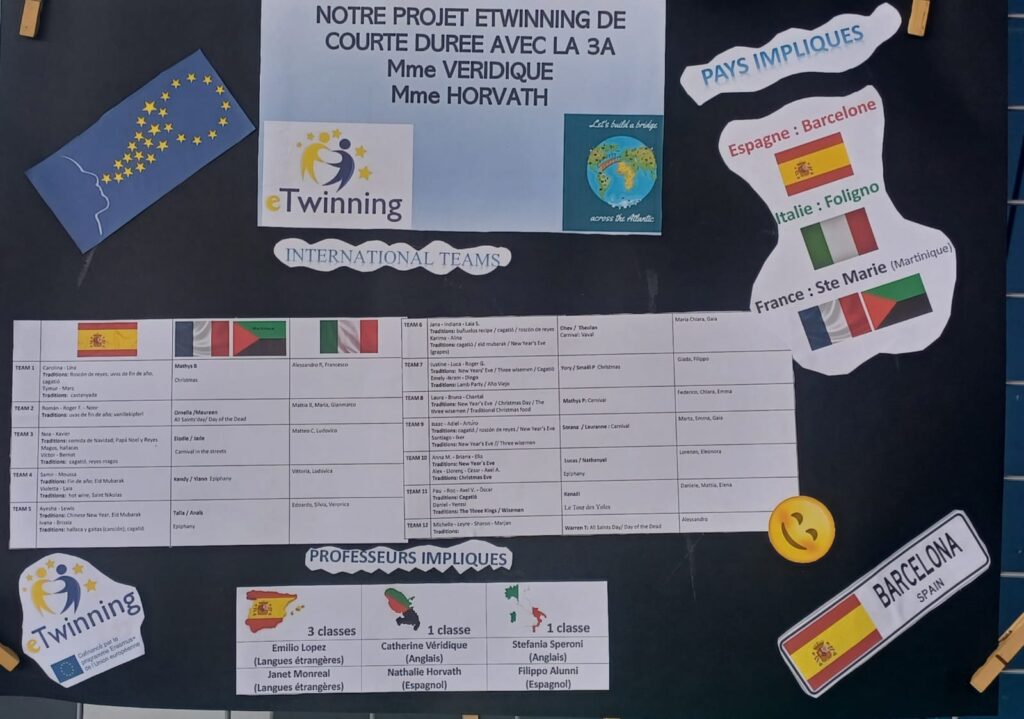 NOTRE PROJET ETWINNING DE
COURTE DUREE AVEC LA 3A
Mme VERIDIQUE
Mme HORVATH
eTwinning
Let's build a bridge
across the Atlantic
PAYS IMPLIQUES
Espagne : Barcelone
Italie : Foligno
France : Ste Marie (Martinique)
INTERNATIONAL TEAMS
TEAM 1
Carolina - Lina
Traditions: Roscón de reyes, uvas de fin de año,
cagatió
Tymur - Març
Traditions: castanyada
Mathys B
Christmas
Alessandro P, Francesco
TEAM 2
Román - Roger F. - Noor
Traditions: uvas de fin de año; vanillekipferl
Ornella /Maureen
All Saints'day/ Day of the Dead
Mattia Z, Maria, Gianmarco
TEAM 3
Noa - Xavier
Traditions: comida de Navidad, Papá Noel y Reyes
Magos, hallacas
Victor - Bernat
Traditions: cagatió, reyes magos
Elodie / Jade
Carnival in the streets
Matteo C, Ludovico
TEAM 4
Samir - Moussa
Traditions: Fin de año, Eid Mubarak
Violetta - Laia
Traditions: hot wine, Saint Nikolas
Kendy / Ylano Epiphany
Vittoria, Ludovica
TEAM 5
Ayesha - Lewis
Traditions: Chinese New Year, Eid Mubarak
Ivana - Brissia
Traditions: hallaca y gaitas (canción); cagatió
Talia / Anaïs
Epiphany
Edoardo, Silvia, Veronica
TEAM 6
Jana - Indiana - Laia S.
Traditions: buñuelos recipe / cagatió / roscón de reyes
Karima - Alina
Traditions: cagatió / eid mubarak / New Year's Eve
(grapes)
Chev / Theolan
Carnival: Vaval
Maria Chiara, Gaia
TEAM 7
Justine - Luca - Roger G.
Traditions: New Years' Eve / Three wisemen / Cagatió
Traditions: Lamb Party / Año Viejo
Yory / Smaïl P Christmas
Giada, Filippo
TEAM 8
Laura - Bruna - Chantal
Traditions: New Year's Eve / Christmas Day / The
three wisemen / Traditional Christmas food
Mathys P: Carnival
Federico, Chiara, Emma
TEAM 9
Isaac - Adiel - Arturo
Traditions: cagatió / roscón de reyes / New Year's Eve
Santiago - Iker
Traditions: New Year's Eve // Three wisemen
Sorana / Lauranne : Carnival
Marta, Emma, Gaia
TEAM 10
Anna M. - Briana - Elis
Traditions: New Year's Eve
Alex - Llorenç - César - Axel A.
Traditions: Christmas Eve
Lucas / Nathanael
Epiphany
Lorenzo, Eleonora
TEAM 11
Pau - Roc - Axel V. - Óscar
Traditions: Cagatió
Daniel - Yeressi
Traditions: The Three Kings / Wisemen
Kenazi
Le Tour des Yoles
Daniele, Mattia, Elena
TEAM 12
Michelle - Leyre - Sharon - Marjan
Traditions:
Warren T: All Saints Day/ Day of the Dead
Alessandro
PROFESSEURS IMPLIQUES
3 classes
1 classe
1 classe
Emilio Lopez
(Langues étrangères)
Catherine Véridique
(Anglais)
Stefania Speroni
(Anglais)
Janet Monreal
(Langues étrangères)
Nathalie Horvath
(Espagnol)
Filippo Alunni
(Espagnol)
eTwinning
Cofinancé par le
programme Erasmus+
de l'Union européenne
BARCELONA
SPAIN